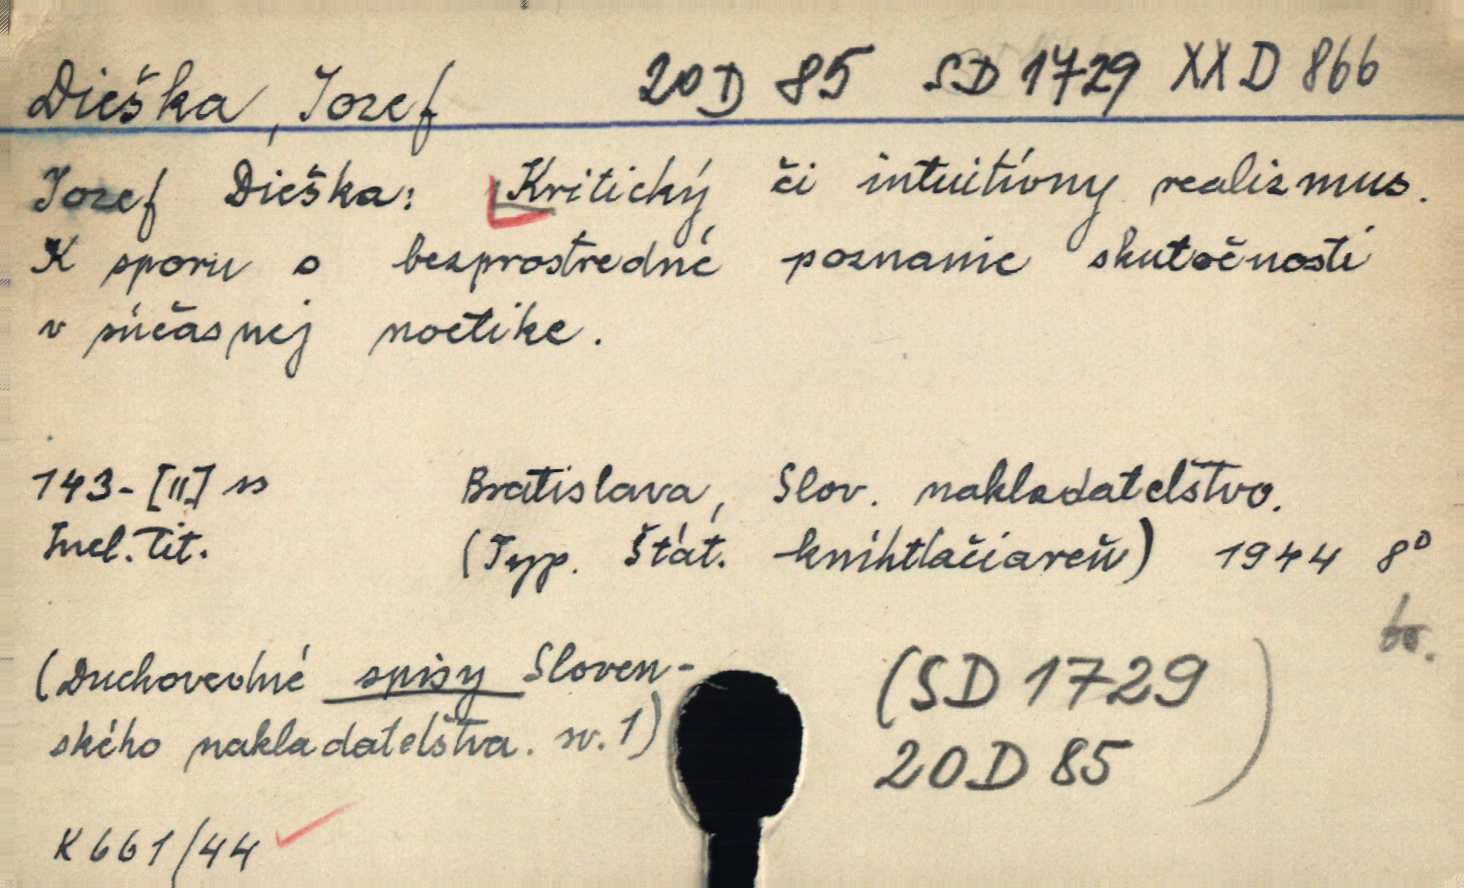 Dieška, Jozef 20 D 85 SD 1729 XX D 866
Jozef Dieška: Kritický či intuitívny realizmus.
K sporu o bezprostredné poznanie skutočnosti
v súčasnej noetike.
143-[II] ss Bratislava, Slov. nakladatelštvo.
Incl. Tit. (Typ. Štát. knihtlačiareň) 1944 8°
br.
(Duchovedné spisy Sloven-
ského nakladatelštva. sv. 1)
(SD 1729
20D 85)
K 661/44